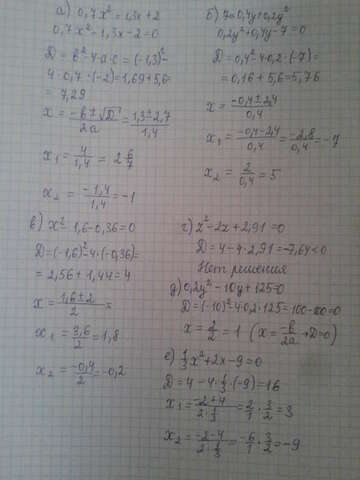 а) 0,7x² = 1,3x + 2
0,7x² - 1,3x - 2 = 0
D = b² - 4·a·c = (-1,3)² -
4·0,7·(-2) = 1,69 + 5,6 =
= 7,29
x = (-b ± √D)/2a = (1,3 ± 2,7)/1,4
x₁ = 4/1,4 = 2 6/7
x₂ = -1,4/1,4 = -1
б) 7 = 0,4y + 0,2y²
0,2y² + 0,4y - 7 = 0
D = 0,4² - 4·0,2·(-7) =
= 0,16 + 5,6 = 5,76
x = (-0,4 ± 2,4)/0,4
x₁ = (-0,4 - 2,4)/0,4 = -2,8/0,4 = -7
x₂ = 2/0,4 = 5
в) x² - 1,6 - 0,36 = 0
D = (-1,6)² - 4·(-0,36) =
= 2,56 + 1,44 = 4
x = (1,6 ± 2)/2 =
x₁ = 3,6/2 = 1,8
x₂ = -0,4/2 = -0,2
г) z² - 2z + 2,91 = 0
D = 4 - 4·2,91 = -7,64 < 0
Нет решения
д) 0,2y² - 10y + 125 = 0
D = (-10)² - 4·0,2·125 = 100 - 100 = 0
е) 1/3 x² + 2x - 9 = 0
D = 4 - 4·1/3·(-9) = 16
x₁ = (-2 + 4)/(2·1/3) = 2/1 · 3/2 = 3
x₂ = (-2 - 4)/(2·1/3) = -6/1 · 3/2 = -9